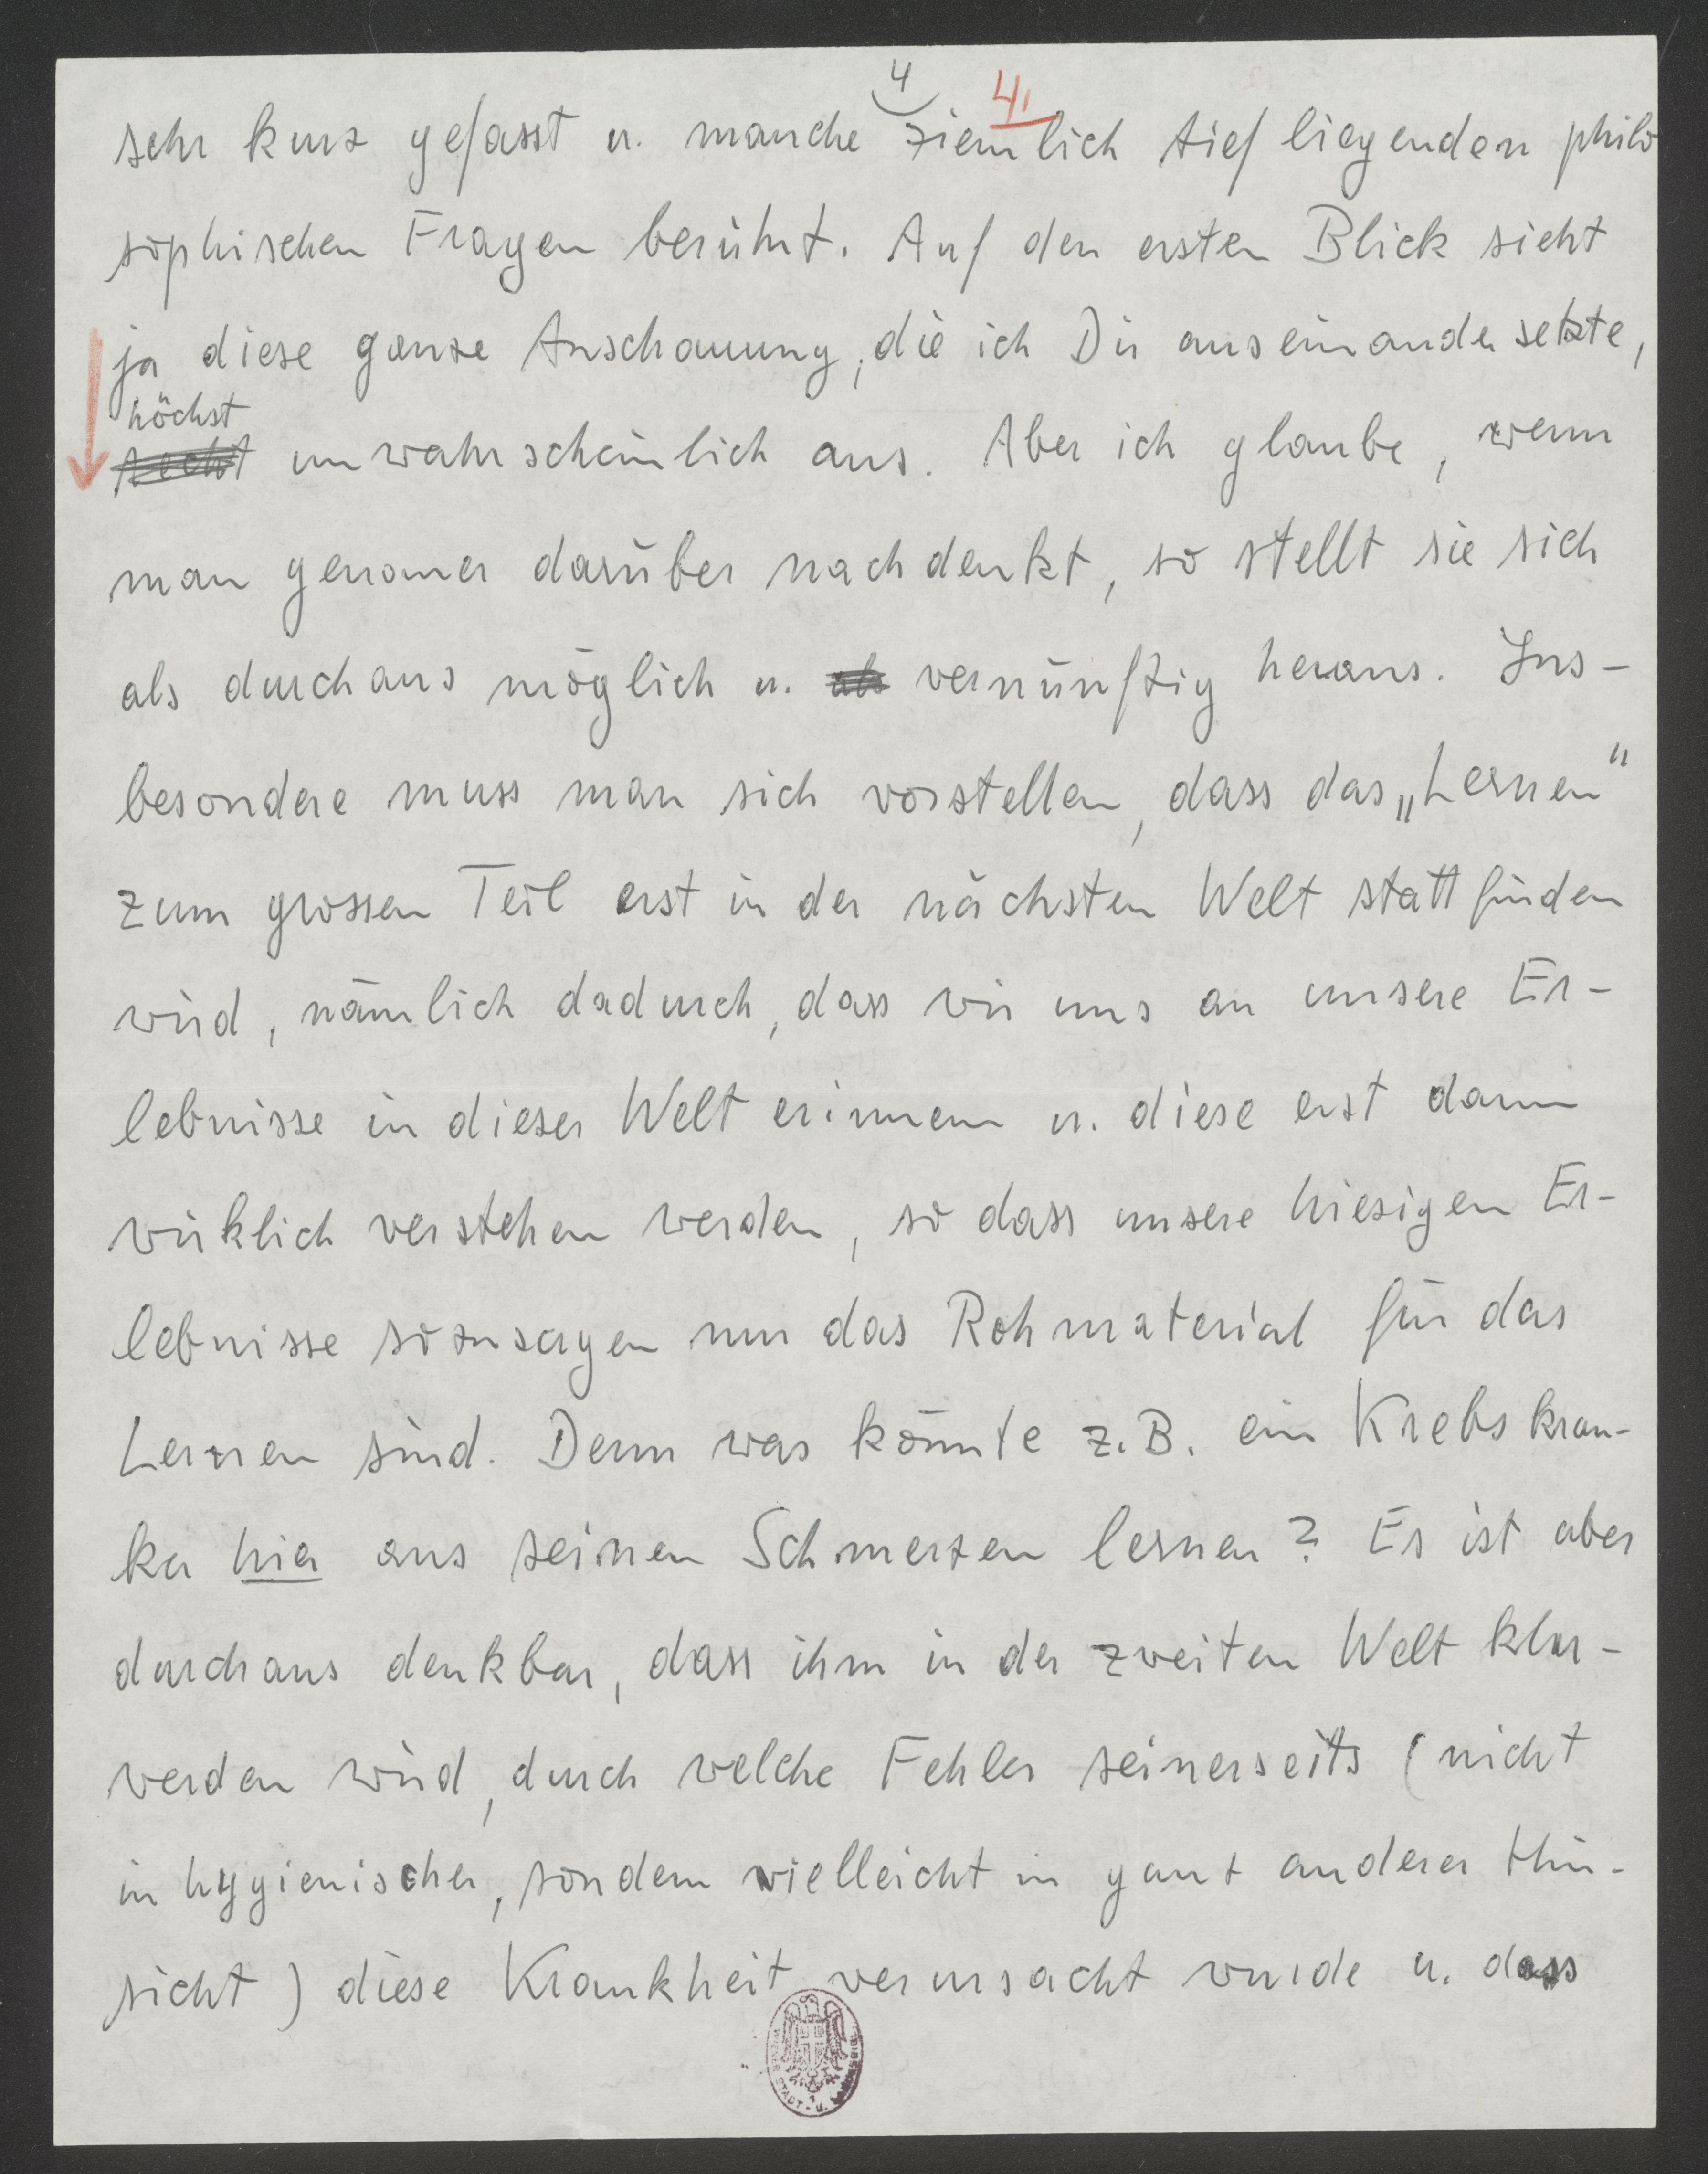 4
4.
sehr kurz gefasst u. manche ziemlich tief liegenden philo
sophischen Fragen berührt. Auf den ersten Blick sieht
ja diese ganze Anschauung, die ich Dir auseinandersetzte,
höchst
unwahrscheinlich aus. Aber ich glaube, wenn
man genauer darüber nachdenkt, so stellt sie sich
als durchaus möglich u. als vernünftig heraus. Ins-
besondere muss man sich vorstellen, dass das „Lernen“
zum grossen Teil erst in der nächsten Welt stattfinden
wird, nämlich dadurch, dass wir uns an unsere Er-
lebnisse in dieser Welt erinnern u. diese erst dann
wirklich verstehen werden, so dass unsere hiesigen Er-
lebnisse sozusagen nur das Rohmaterial für das
Lernen sind. Denn was könnte z.B. ein Krebskran-
ker hier aus seinen Schmerzen lernen? Es ist aber
durchaus denkbar, dass ihm in der zweiten Welt klar-
werden wird, durch welche Fehler seinerseits (nicht
in hygienischer, sondern vielleicht in ganz anderer Hin-
sicht) diese Krankheit verursacht wurde u. dass